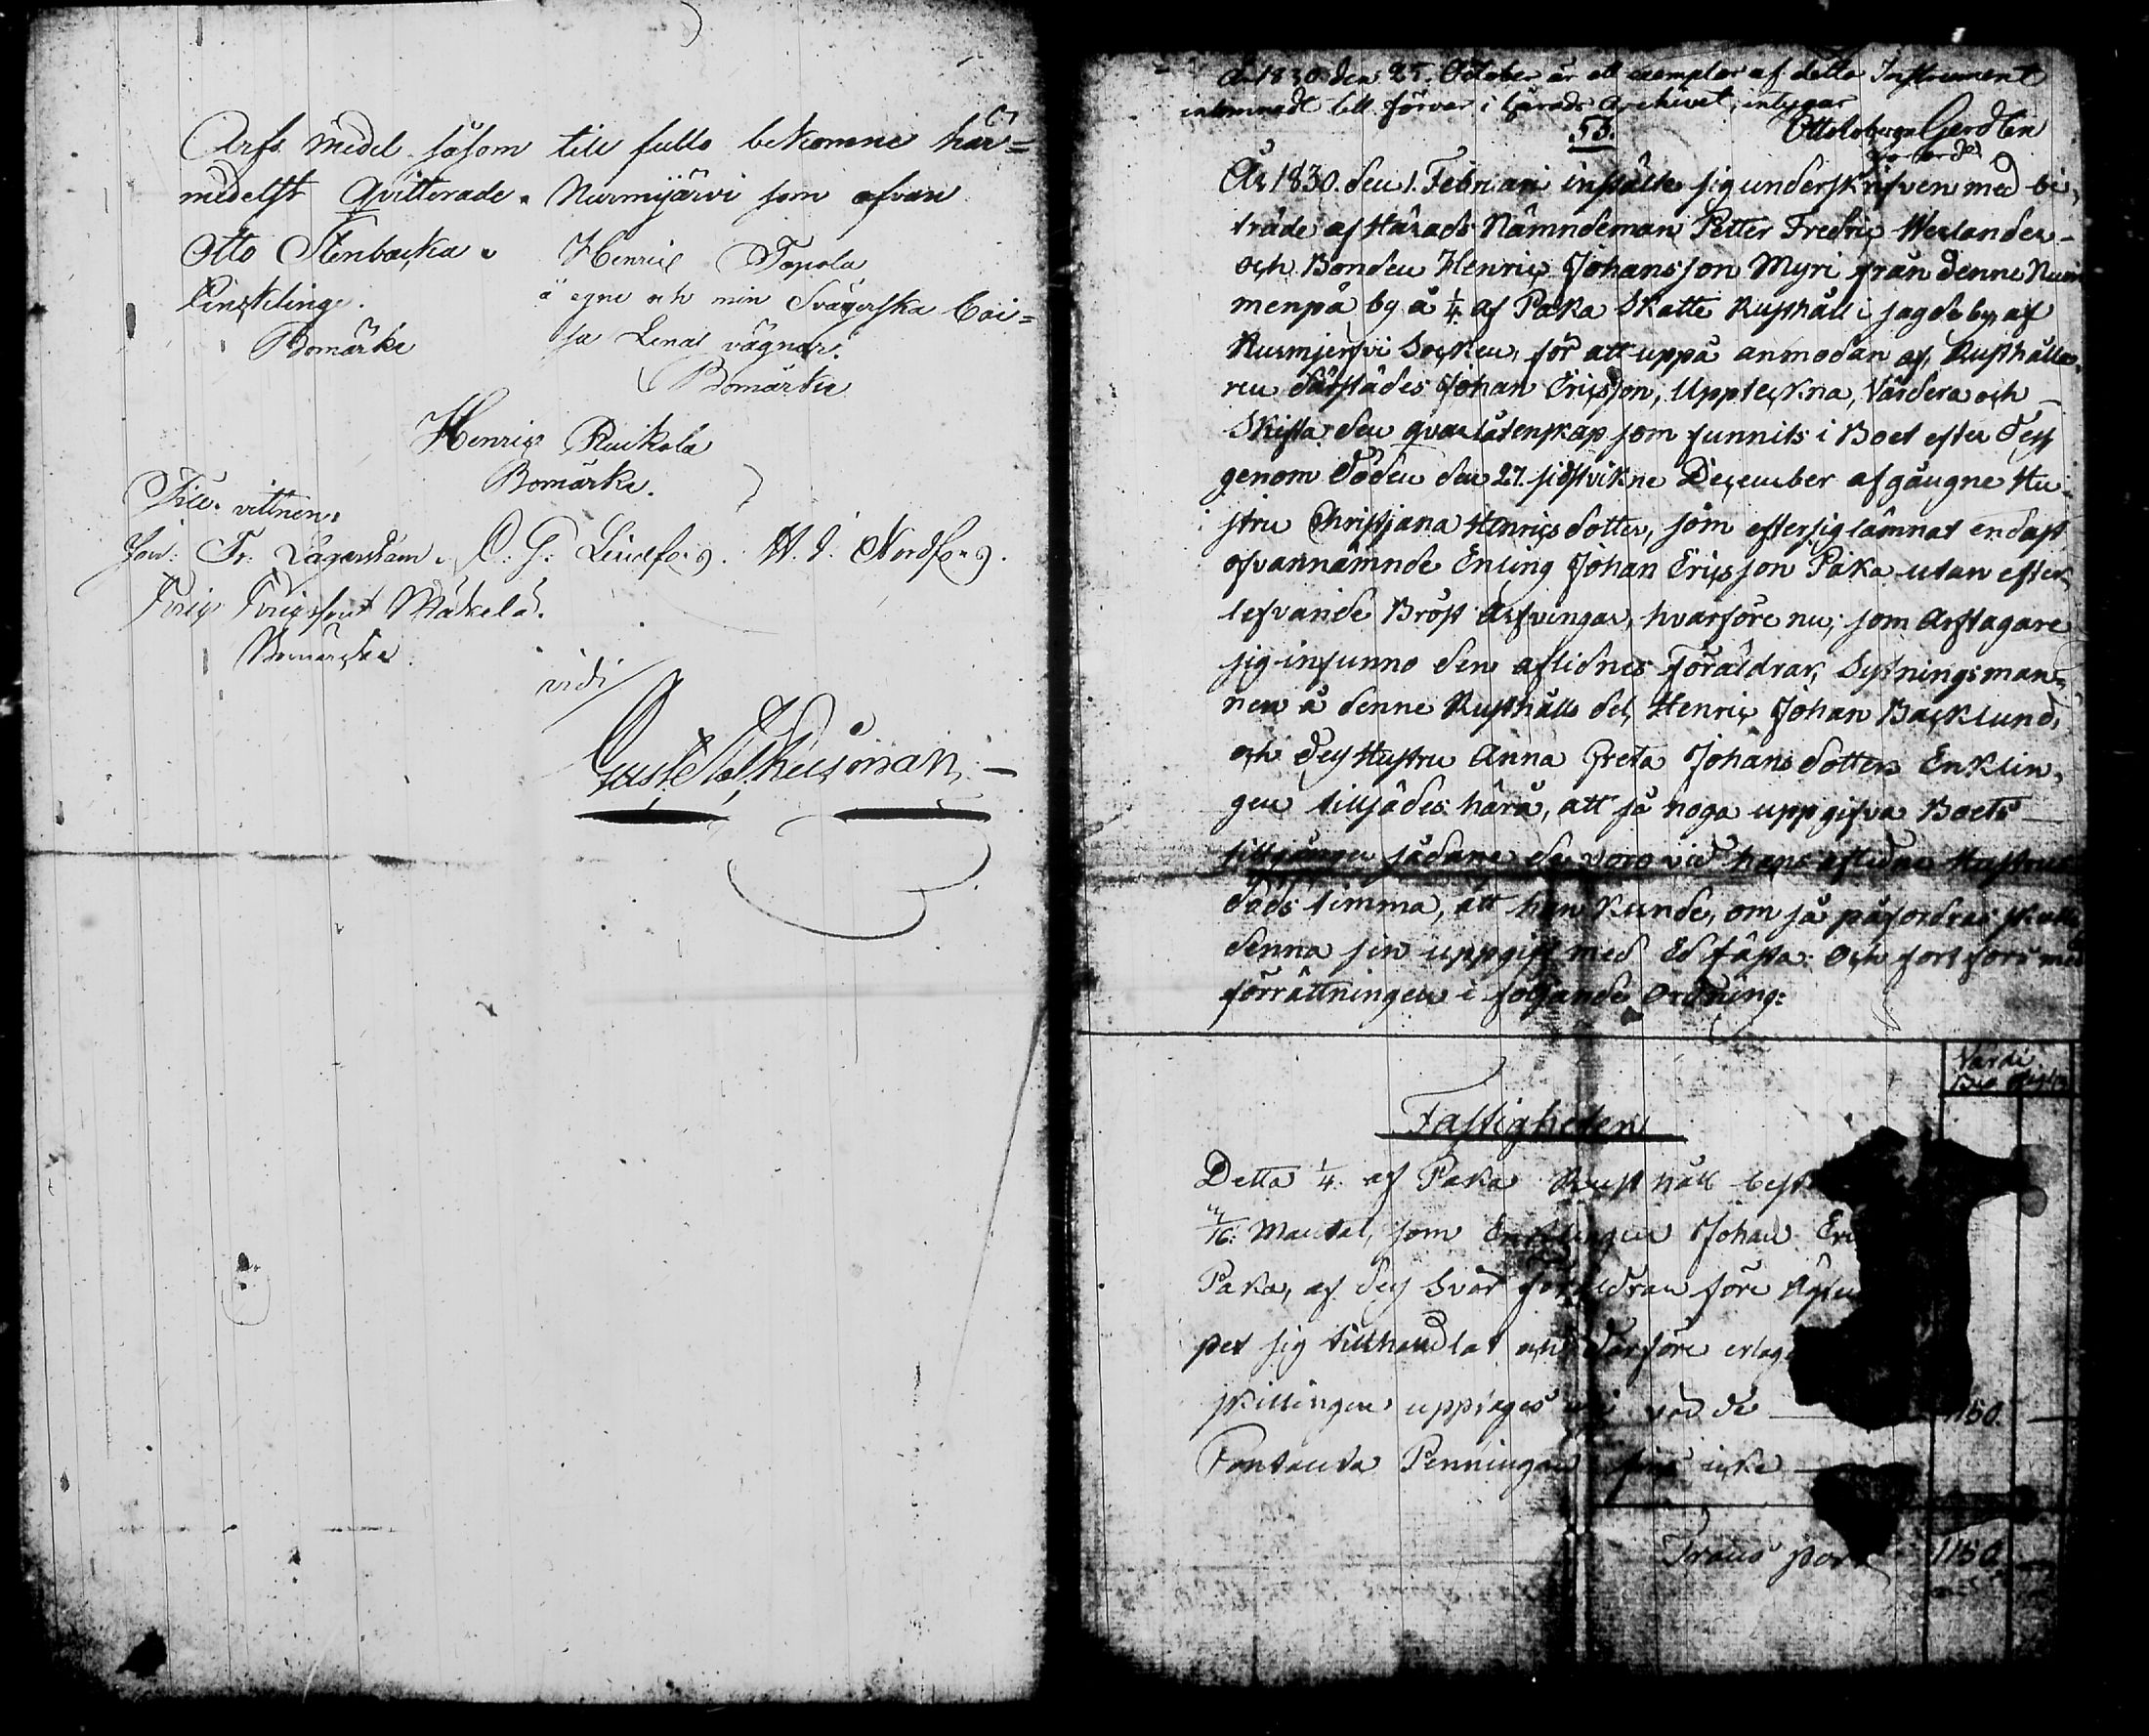 Arfs medel såsom till fullo bekomne här=
medelst qvitterade. Nurmijärvi som ofvan
Otto Stenbacka Henric Topola
Enkling. å egne och min Svägerska Cai=
Bomärke sa Lenas vägnar.
Bomärke
Henric Ruikola
Bomärke.
Till vittnen:
Joh: Fr: Lagerstam. C. G. Lindfors. H. J. Nordfors.
Eric Ericsson Mäkelä.
Bomärke.
vidi
Gust. Ad.
År 1830 den 25. October är ett exemplar af detta Instrument
inlemnadt till förvar i härads Archivet, intygar
53.
År 1830. den 1. Februari instälte sig underskrifven med bi-
träde af Härads Nämndeman Petter Fredric Werlander
och Bonden Henric Johansson Myri från denne Num
menpä by å 1/4 af Paka Skatte Rusthåll i sagde by af
Nurmjerfvi Socken, för att uppå anmodan af Rusthålla-
ren därstädes Johan Ericsson, Upptekna, Värdera och
Skifta den qvarlåtenskap som funnits i Boet efter dess
genom döden den 27. sidstvikne December afgångne Hu-
stru Christjana Henricsdotter, som efter sig lämnat endast
ofvannämnde Enling Johan Ericsson Paka utan efter
lefvande Bröst Arfvingar, hvarföre nu, som Arftagare
sig infunno den aflidnes Föräldrar, Sytningsman=
nen å denne Rusthålls del, Henric Johan Backlund,
och dess Hustru Anna Greta Johansdotter. Enklin-
gen tillsades härå, att så noga uppgifva Boets
tillgångar sådane de voro vid hans aflidne Hustrus
döds timma, att han kunde, om så påfordras skulle
denna sin uppgift med Ed fästa: Och fortfors med
förrättningen i följande Ordning:
Värde
Fastigheten
Detta 1/4 af Paka Rusthåll best
Mantal, som Enklingen Johan Eri
Paka, af dess Svär föräldrar före
pet sig tillhandlat och därföre erlag
skillingen upptages värde 1150.
Contanta Penningar fins icke
Transport 1150